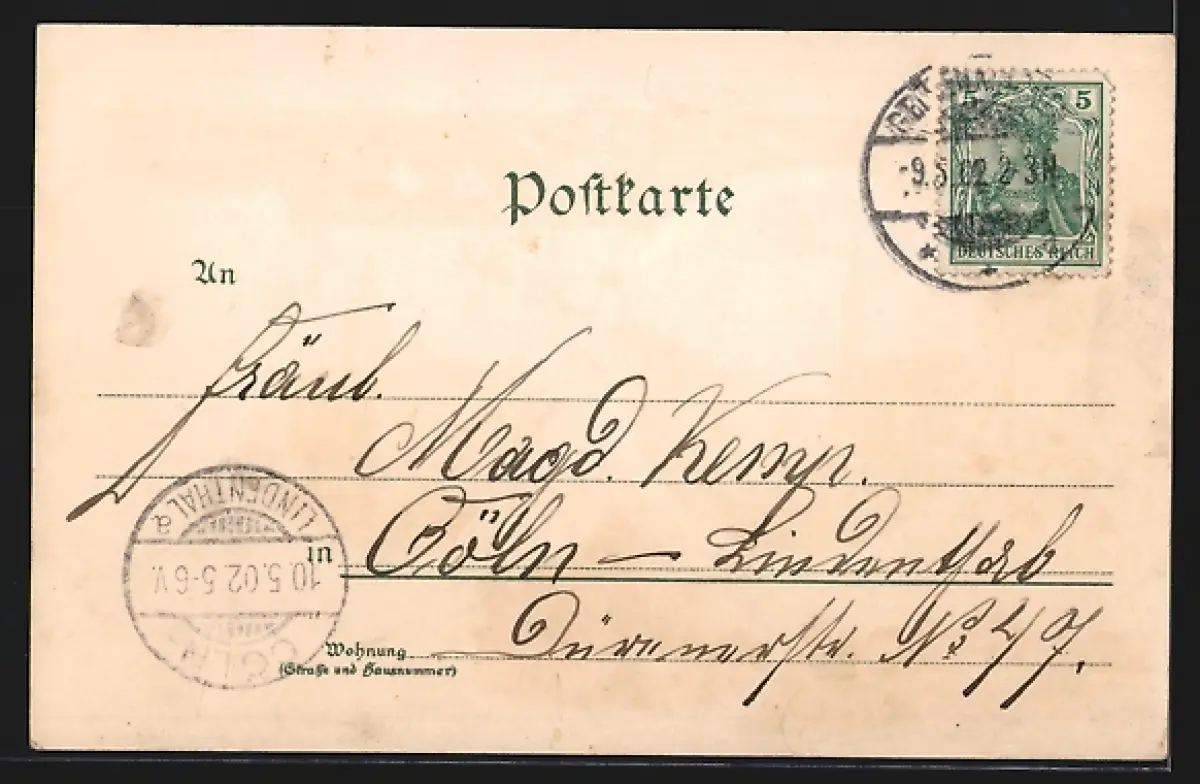 5 5
-9.5.02 2-3N
DEUTSCHES REICH
Postkarte
An
Fräul.
Magd. Kemp.
in Cöln – Lindenthal
Wohnung
(Straße und Hausnummer)
Dürenerstr. No 47.
CÖLN
10.5.02.5-6V.
LINDENTHAL a